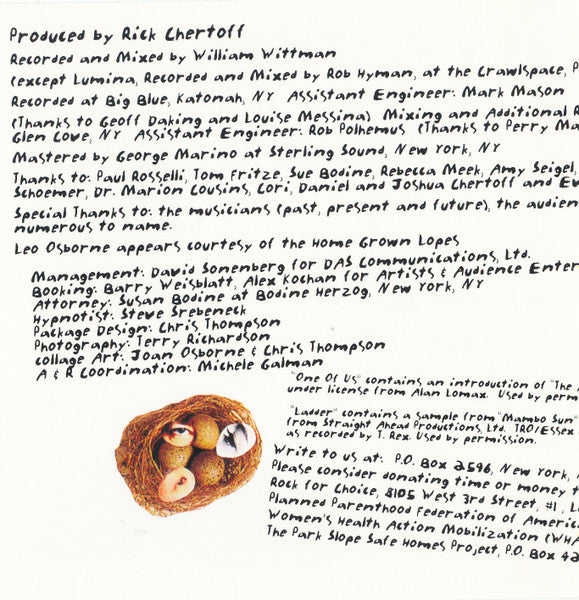 Produced by Rick Chertoff
Recorded and Mixed by William Wittman
(except Lumina, Recorded and Mixed by Rob Hyman, at the Crawlspace, P
Recorded at Big Blue, Katonah, NY Assistant Engineer: Mark Mason
(Thanks to Geoff Daking and Louise Messina) Mixing and Additional R
Glen Cove, NY Assistant Engineer: Rob Polhemus (Thanks to Perry Ma
Mastered by George Marino at Sterling Sound, New York, NY
Thanks to: Paul Rosselli, Tom Fritze, Sue Bodine, Rebecca Meek, Amy Seigel,
Schoemer, Dr. Marion Cousins, Lori, Daniel and Joshua Chertoff and Ev
Special Thanks to: the musicians (past, present and future), the audien
numerous to name.
Leo Osborne appears courtesy of the Home Grown Lopes
Management: David Sonenberg for DAS Communications, Ltd.
Booking: Barry Weisblatt, Alex Kochan for Artists & Audience Enter
Attorney: Susan Bodine at Bodine Herzog, New York, NY
Hypnotist: Steve Srebeneck
Package Design: Chris Thompson
Photography: Terry Richardson
collage Art: Joan Osborne & Chris Thompson
A & R Coordination: Michele Galman
"One Of Us" contains an introduction of "The A
under license from Alan Lomax. Used by perm
"Ladder" contains a sample from "Mambo Sun"
from Straight Ahead Productions, Ltd. TRO/Essex
as recorded by T. Rex. Used by permission.
Write to us at: P.O. Box 2596, New York,
Please consider donating time or money t
Rock for Choice, 8105 West 3rd Street, #1, L
Planned Parenthood Federation of Americ
Women's Health Action Mobilization (WHA
The Park Slope Safe Homes Project, P.O. Box 42